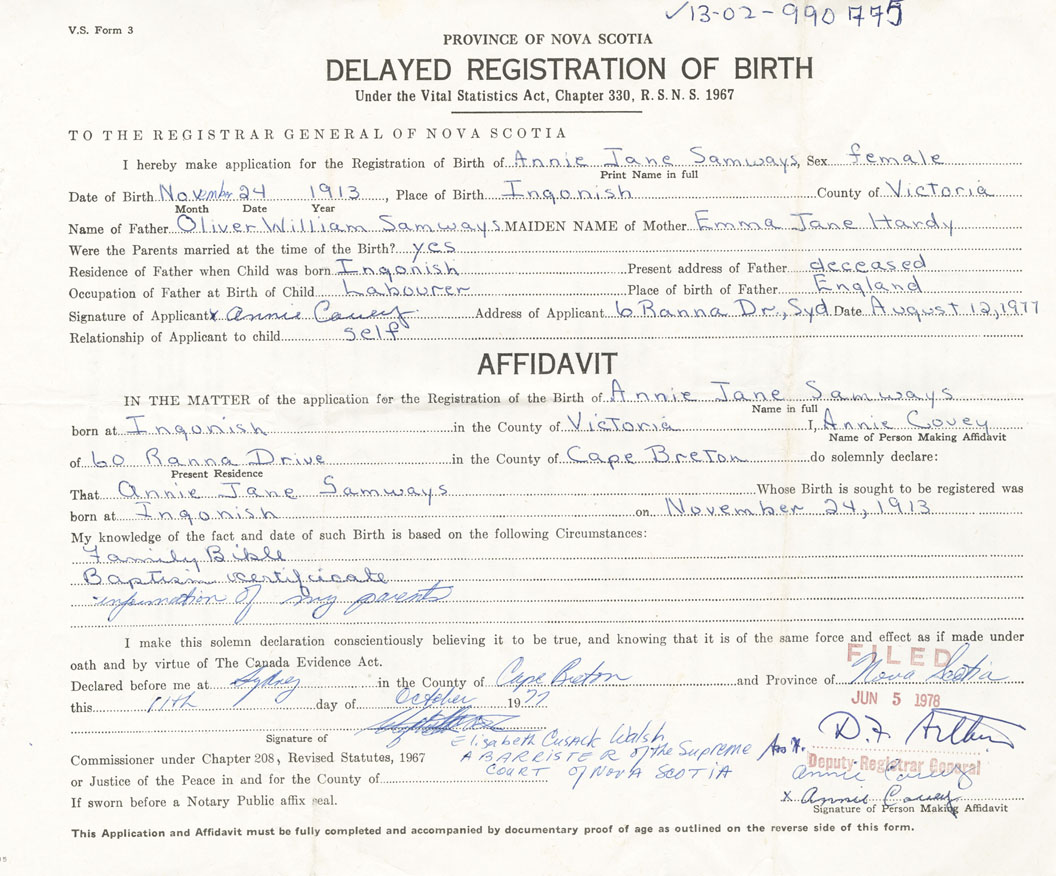 13-02-990775
V.S. Form 3
PROVINCE OF NOVA SCOTIA
DELAYED REGISTRATION OF BIRTH
Under the Vital Statistics Act, Chapter 330, R.S.N.S. 1967
TO THE REGISTRAR GENERAL OF NOVA SCOTIA
I hereby make application for the Registration of Birth of Annie Jane Samways, Sex female
Print Name in full
Date of Birth November 24 1913, Place of Birth Ingonish County of Victoria
Month Date Year
Name of Father Oliver William Samways MAIDEN NAME of Mother Emma Jane Hardy
Were the Parents married at the time of the Birth? yes
Residence of Father when Child was born Ingonish Present address of Father deceased
Occupation of Father at Birth of Child Labourer Place of birth of Father England
Signature of Applicant x Annie Covey Address of Applicant 60 Ranna Dr., Syd Date August 12, 1977
Relationship of Applicant to child self
AFFIDAVIT
IN THE MATTER of the application for the Registration of the Birth of Annie Jane Samways
Name in full
born at Ingonish in the County of Victoria I, Annie Covey
Name of Person Making Affidavit
of 60 Ranna Drive in the County of Cape Breton do solemnly declare:
Present Residence
That Annie Jane Samways Whose Birth is sought to be registered was
born at Ingonish on November 24, 1913
My knowledge of the fact and date of such Birth is based on the following Circumstances:
Family Bible
Baptism certificate
information of my parents
I make this solemn declaration conscientiously believing it to be true, and knowing that it is of the same force and effect as if made under
oath and by virtue of The Canada Evidence Act.
FILED
Declared before me at Sydney in the County of Cape Breton and Province of Nova Scotia
this 11th day of October 1977
JUN 5 1978
Signature of
Elizabeth Cusack Walsh
Commissioner under Chapter 208, Revised Statutes, 1967
A BARRISTER of the Supreme
COURT of NOVA SCOTIA
D.F.
Deputy Registrar General
or Justice of the Peace in and for the County of
Annie Covey
If sworn before a Notary Public affix seal.
x Annie Covey
Signature of Person Making Affidavit
This Application and Affidavit must be fully completed and accompanied by documentary proof of age as outlined on the reverse side of this form.